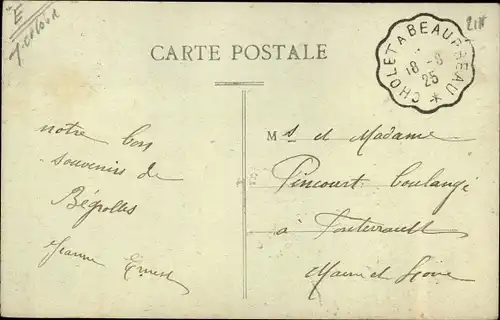 E
CARTE POSTALE
CHOLET A BEAUPREAU *
18 - 8
25
notre bon
souvenirs de
Bégrolles
Jeanne Ernest
Ms et Madame
Pincourt boulangé
à Fontevrault
Maine et Loire